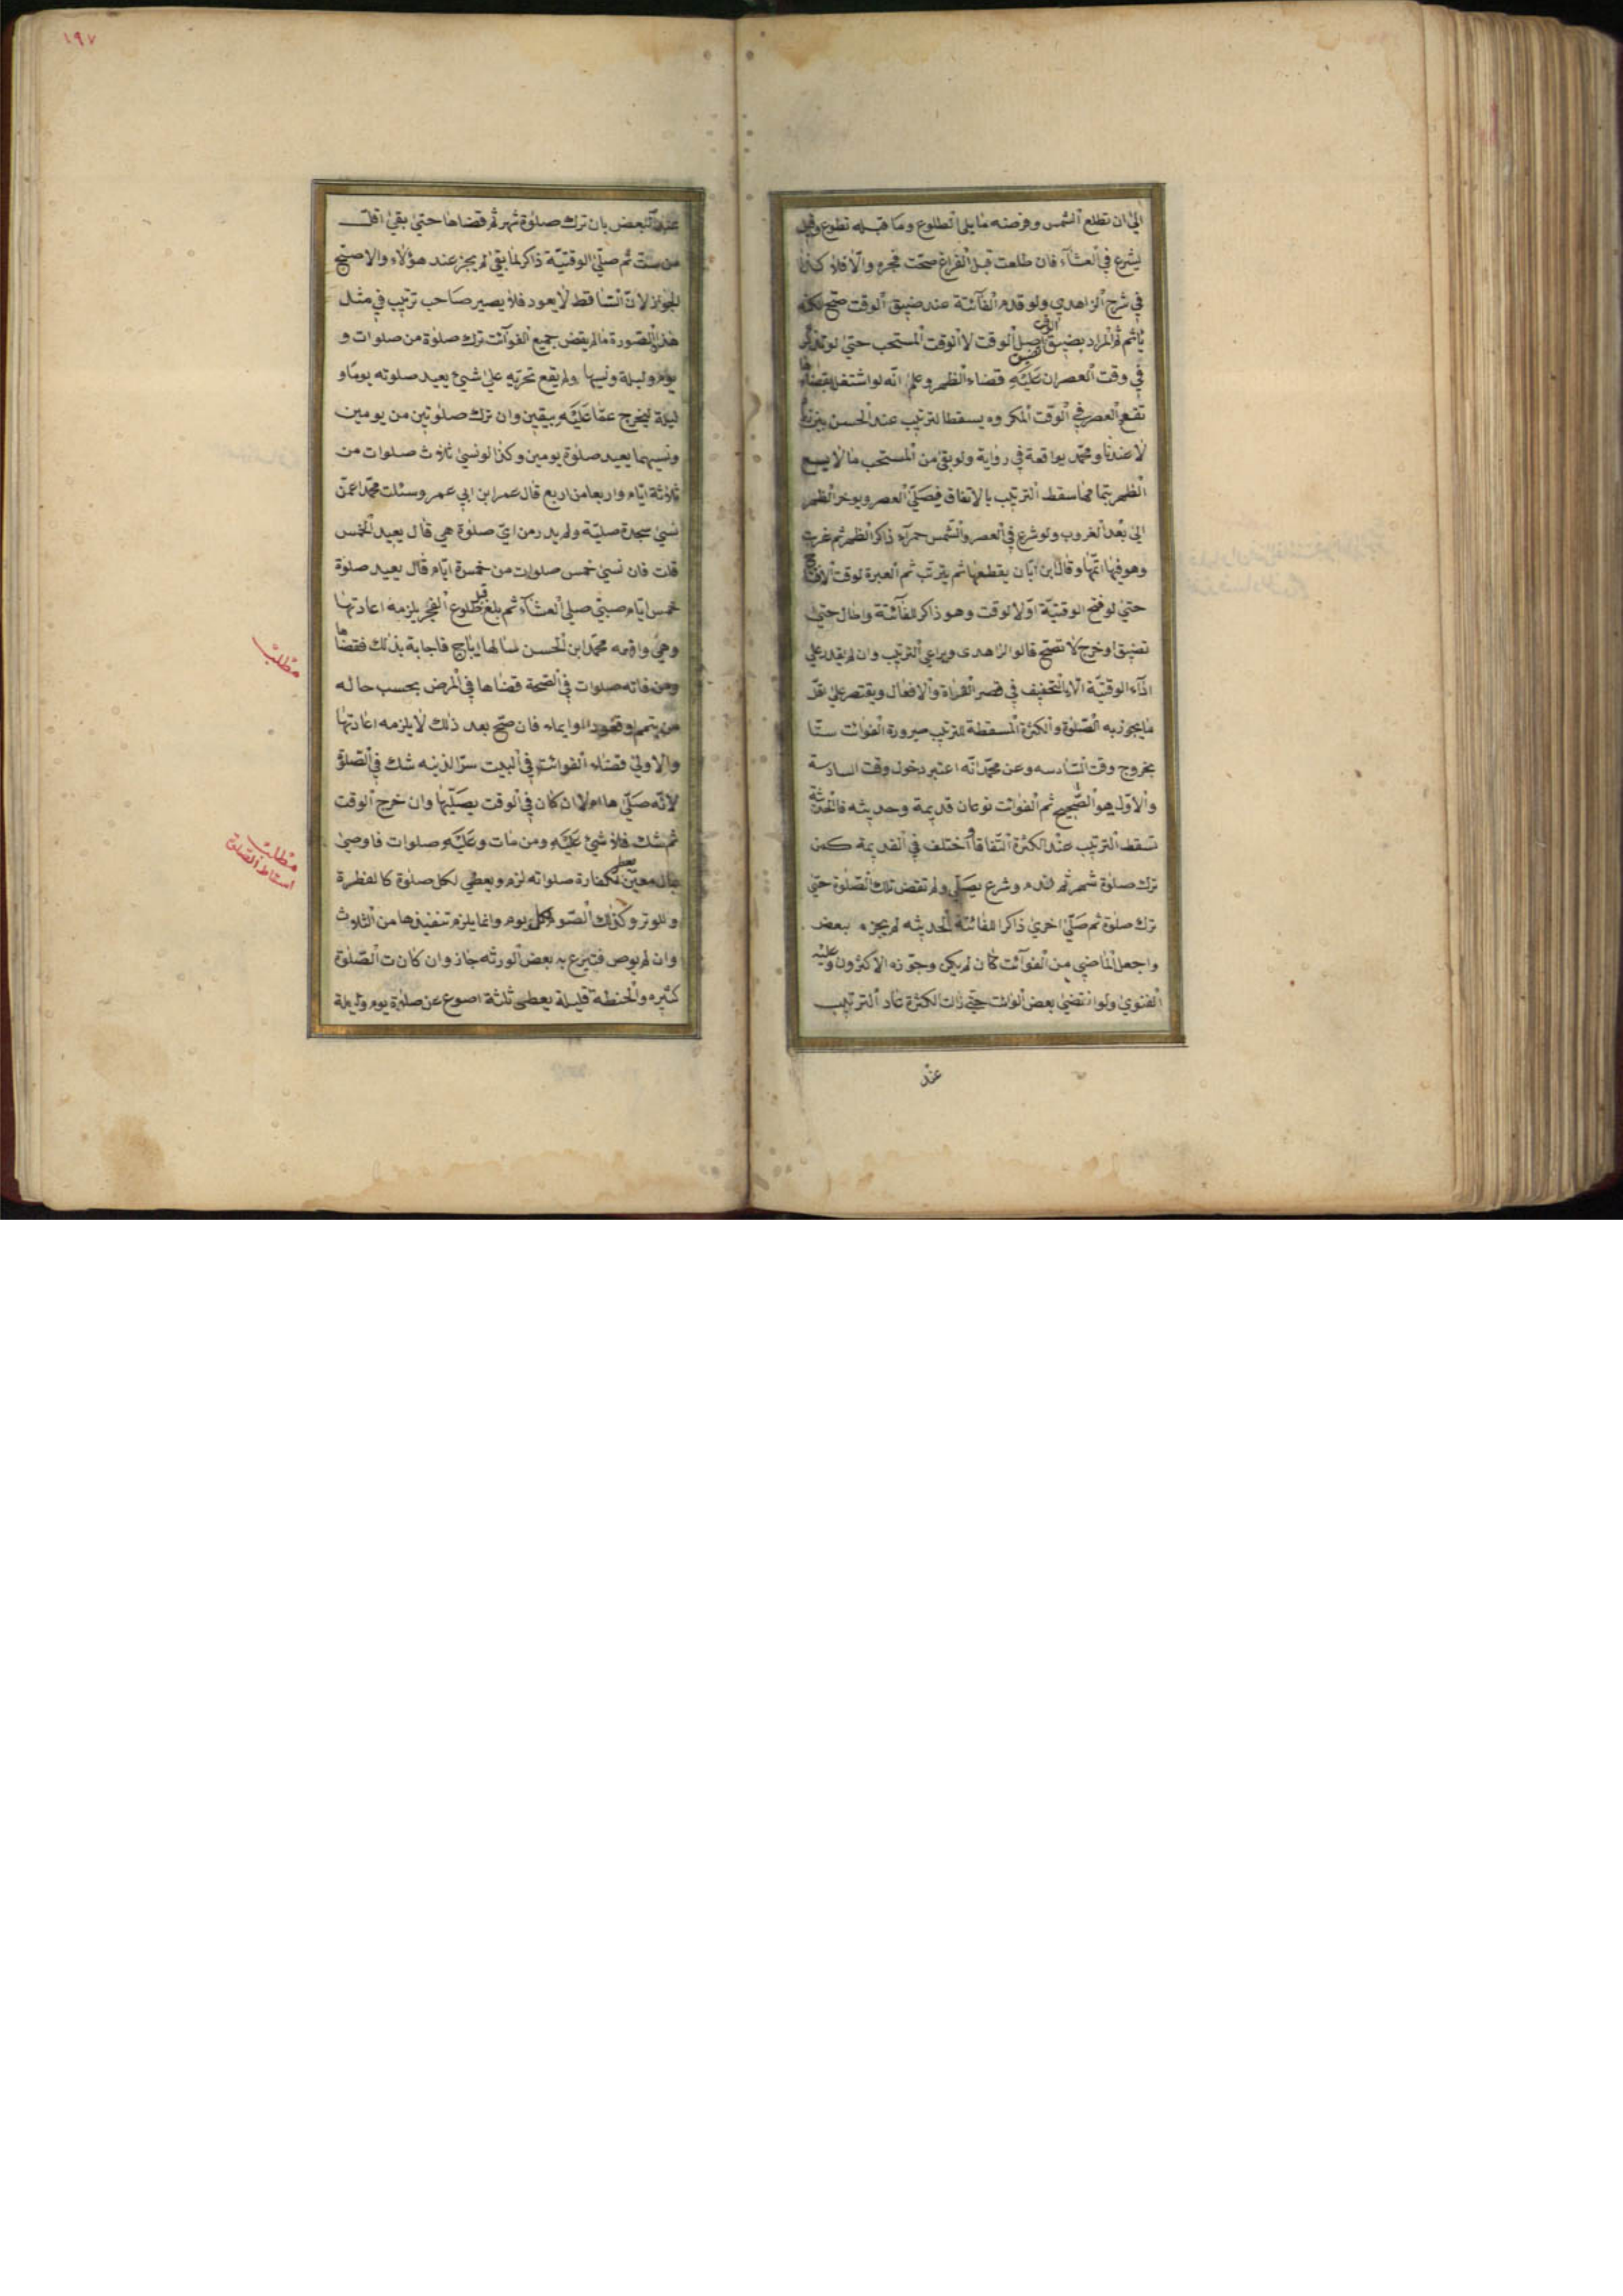 الى ان تطلع الشمس وفرضه ما يلى الطلوع وما قبله تطوع وقيل
يشرع في العشاء فان طلعت قبل الفراغ صحت فجره والا فلا كذا
في شرح الزاهدي ولو قدم الفائتة عند ضيق الوقت صح لكنه
يأثم ثم المراد بضيق الوقت اصل الوقت لا الوقت المستحب حتى لو تذكر
في وقت العصر ان عليه قضاء الظهر وعلم انه لو اشتغل بقضائها
تقع العصر في الوقت المكروه يسقط الترتيب عند الحسن بن زياد
لا عندنا ومحمد يوافقه في رواية ولو بقى من المستحب ما لا يسع
الظهر بتمامها سقط الترتيب بالاتفاق فيصلى العصر ويوخر الظهر
الى بعد الغروب ولو شرع في العصر والشمس حمرآء ذاكر الظهر ثم غربت
وهو فيها اتمها وقال ابن ابان يقطعها ثم يترتب ثم العبرة لوقت الافتتاح
حتى لو فتح الوقتية اول الوقت وهو ذاكر للفائتة واطال حتى
تضيق او خرج لا تصح قالوا الزاهدى ويراعى الترتيب وان لم يقدر على
ادآء الوقتية الا بالتخفيف في قصر القراة والافعال ويقتصر على اقل
ما يجوز به الصلوة والكثرة المسقطة للترتيب صيرورة الفوائت ستا
بخروج وقت السادسه وعن محمد انه اعتبر دخول وقت السادسة
والاول هو الصحيح ثم الفوائت نوعان قديمة وحديثه فالحديثة
تسقط الترتيب عند الكثرة اتفاقا واختلف في القديمة كمن
ترك صلوة شهر ثم ندم وشرع يصلى ولم تقض تلك الصلوة حتى
ترك صلوة ثم صلى اخرى ذاكرا للفائتة الحديثه لم يجزه بعض
واجعل الماضى من الفوآئت كان لم يكن وجوزه الاكثرون وعليه
الفتوى ولو انتقضى بعض الوائت حتى زات الكثرة عاد الترتيب
عند
١٩٧
عند البعض بان ترك صلوة شهر ثم قضاها حتى بقى اقل
من ست ثم صلى الوقتية ذاكر لما بقى لم يجز عند هؤلاء والاصح
الجواز لان الساقط لا يعود فلا يصير صاحب ترتيب في مثل
هذه الصورة ما لم يقض جميع الفوآئت ترك صلوة من صلوات و
يوم وليلة ونسيها ولم يقع تحريه على شيئ يعيد صلوته يوما و
ليلة ليخرج عما عليه بيقين وان ترك صلوتين من يومين
ونسيهما يعيد صلوة يومين وكذا لو نسى ثلاث صلوات من
ثلاثة ايام واربعا من اربع قال عمر ابن ابى عمر وسئلت محمدا عمن
نسى سجدة صلبية ولم يدر من اى صلوة هى قال يعيد الخمس
قلت فان نسى خمس صلوات من خمسة ايام قال يعيد صلوة
خمس ايام صبى صلى العشآء ثم بلغ قبل طلوع الفجر يلزمه اعادتها
وهى واقعه محمد ابن الحسن فاجابة بذلك فقضاها
ومن فاته صلوات في الصحة قضاها في المرض بحسب حاله
من تيمم وقعود او ايماء فان صح بعد ذلك لا يلزمه اعادتها
والاولى قضاء الفوائت في البيت سرا شك في الصلوة
لانه صلى ها ام لا ان كان في الوقت يصليها وان خرج الوقت
ثم شك فلا شئ عليه ومن مات وعليه صلوات فاوصى
بمال معين يعطى لكفارة صلواته لزم ويعطى لكل صلوة كالفطرة
وللوتر وكذلك الصوم لكل يوم وانما يلزم تنفيذها من الثلاث
وان لم يوص فتبرع به بعض الورثه جاز وان كان ت الصلوة
كثيره والحنطة قليلة يعطى ثلثة اصوع عن صلوة يوم وليلة
مطلب
مطلب
اسقاط الصلوة